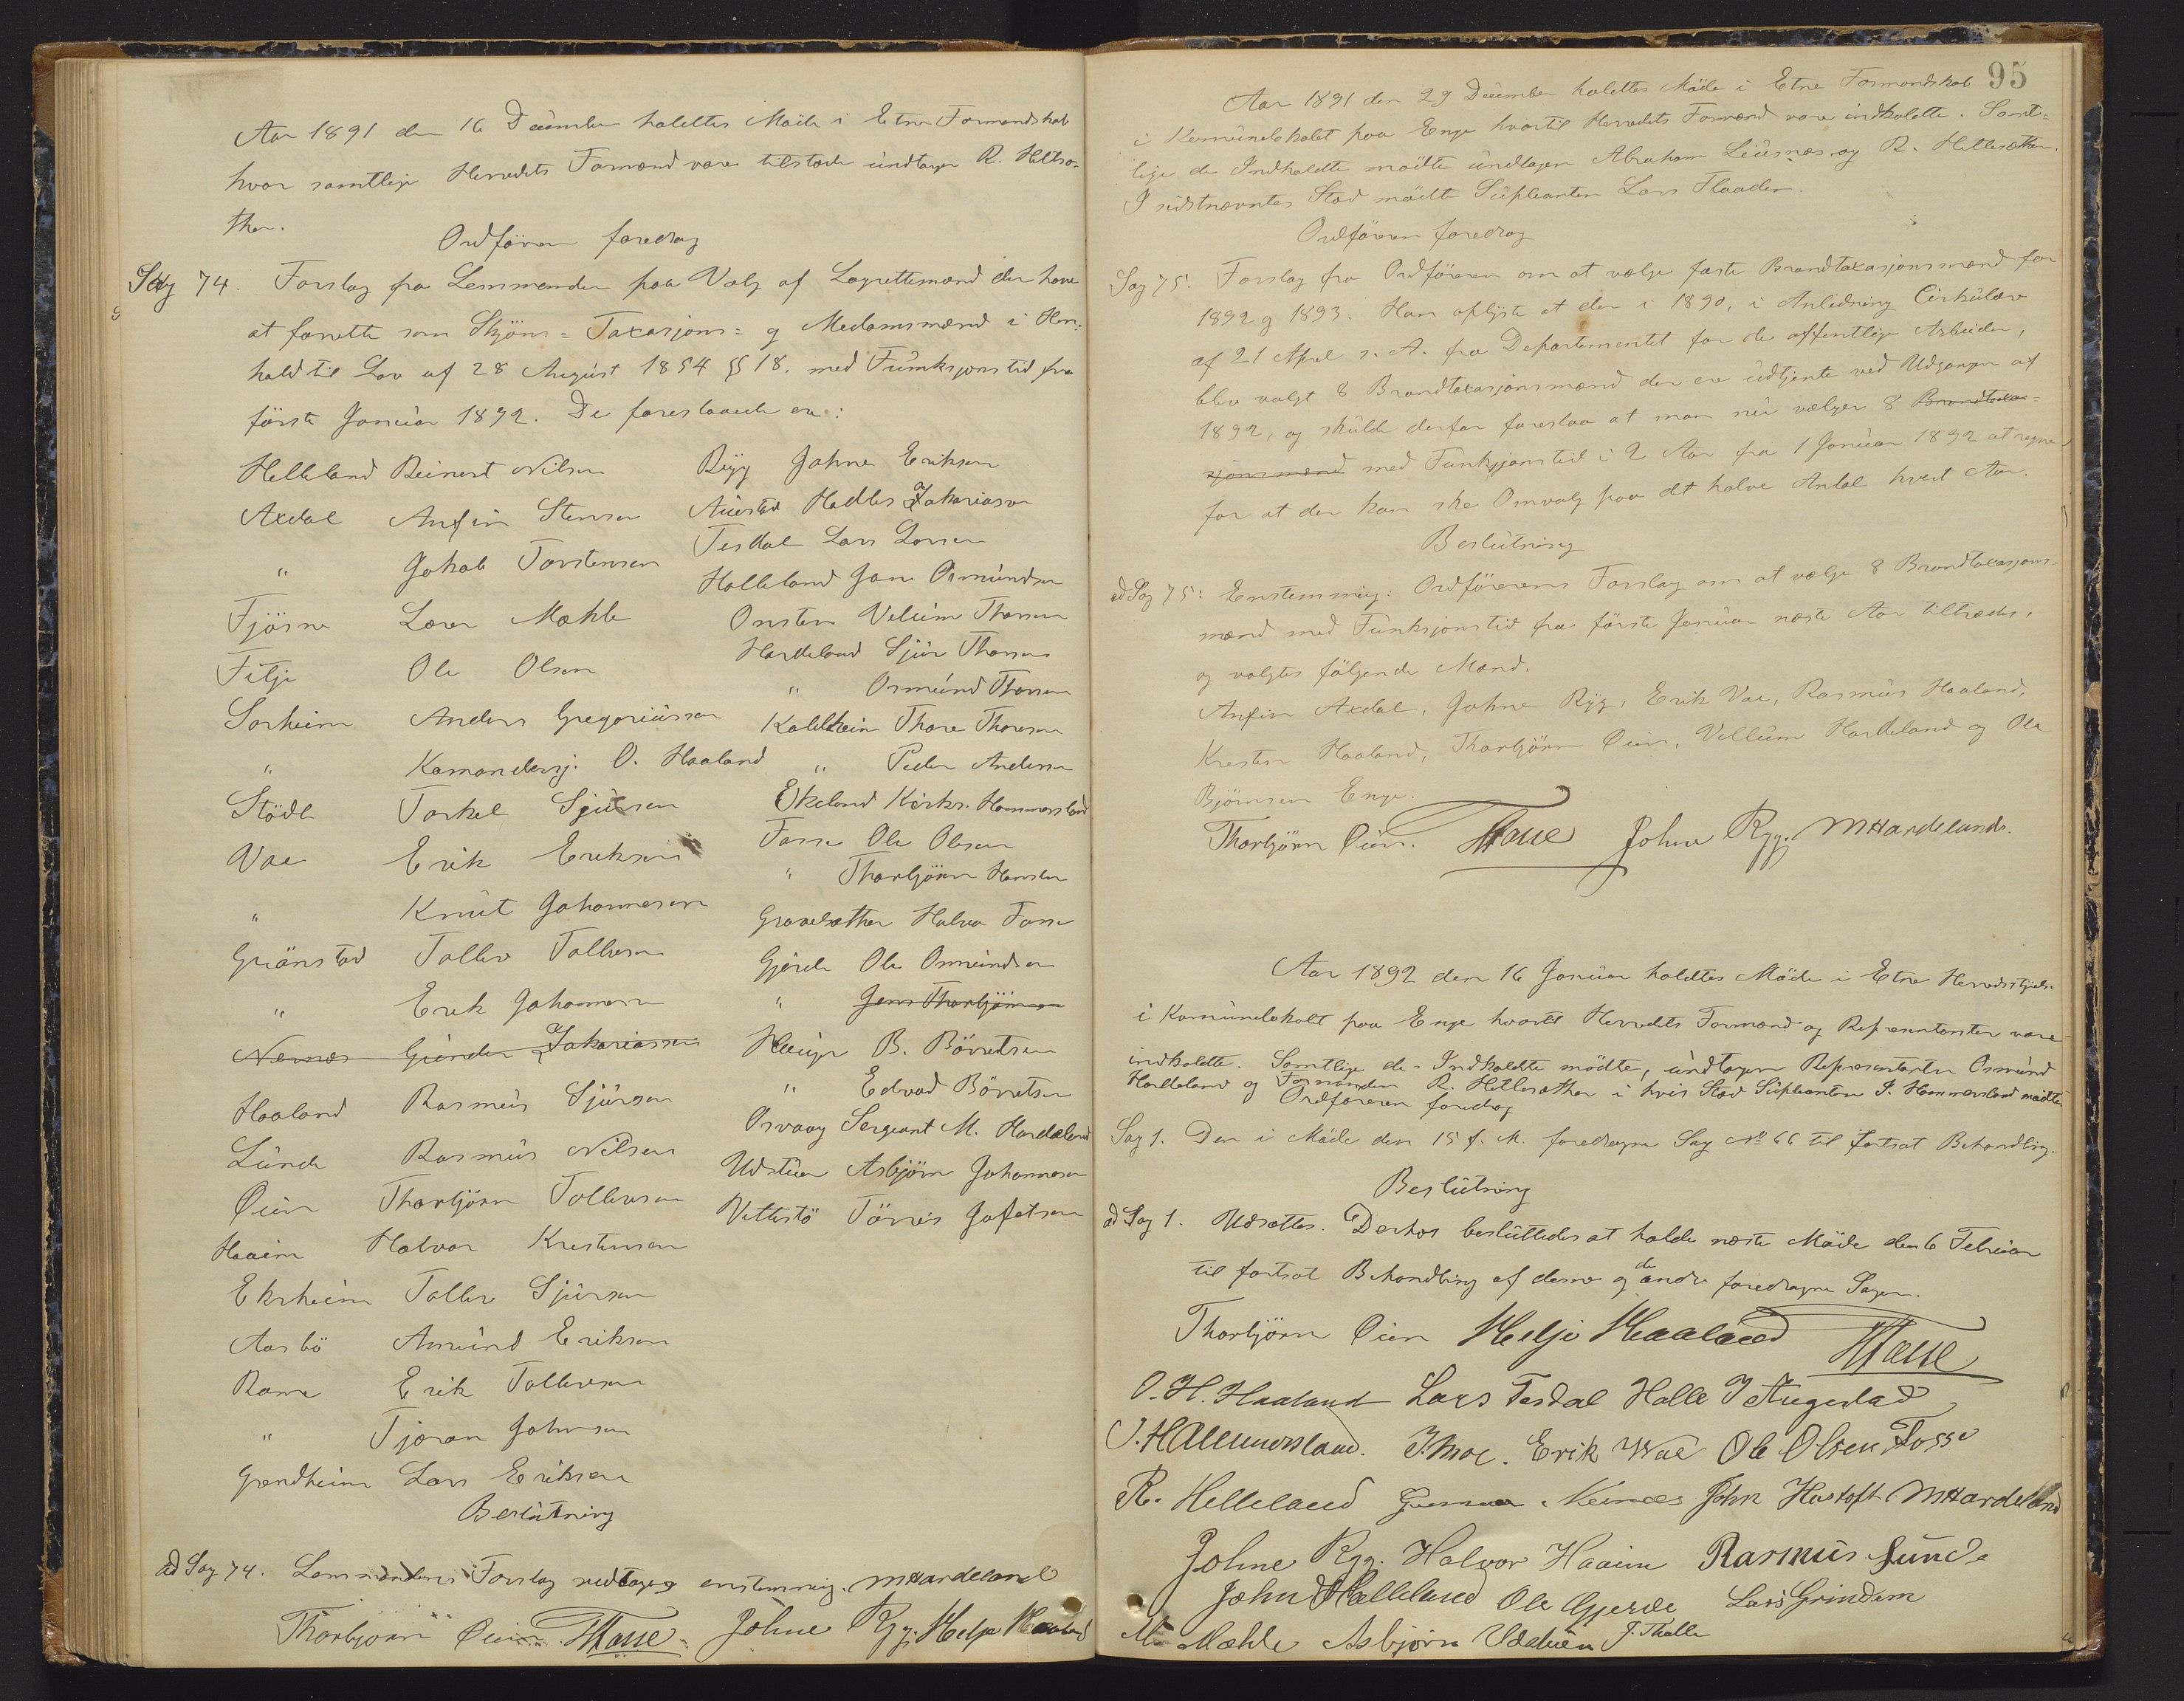 Aar 1891 den 16 December holdtes Møde i Etne Formandskab
hvor samtlige Herredets Formænd vare tilstede undtagen R. Hetlesæ-
ther.
Ordføreren foredrog
Sag 74. Forslag fra Lensmanden paa Valg af Lagrettemænd der have
at forrette som Skjöns- Taxasjons- og Medomsmænd i Hen-
hold til Lov af 28 August 1854 §§ 18. med Funksjonstid fra
förste Januar 1892. De foreslaaede ere:
Helleland Reinert Nilsen
Axdal Anfin Stensen
" Jakob Torstensen
Fjösne Lars Mæhle
Filje Ole Olsen
Sørheim Anders Gregoriussen
" Komandersj. O. Haaland
Stödle Torkel Sjursen
Vae Erik Eriksen
" Knut Johannesen
Grönstad Tollev Tollevsen
" Erik Johannesen
Nernæs Gunder Zakariassen
Haaland Rasmus Sjursen
Lunde Rasmus Nilsen
Øien Thorbjörn Tollevsen
Haaim Halvor Kristensen
Ekrheim Tollev Sjursen
Aarbö Amund Eriksen
Rame Erik Tollevsen
" Tjæran Johnsen
Grendheim Lars Eriksen
Rygg Johne Eriksen
Austad Hadles Zakariasen
Tesdal Lars Larsen
Halleland Jone Osmundsen
Onsten Velum Thorsen
Hardeland Sjur Thorsen
" Osmund Thorsen
Kaldheim Thore Thoresen
" Peder Andersen
Ekeland Kirks. Hammersland
Fosse Ole Olsen
" Thorbjörn Hansen
Gravelsæther Halvor Fosse
Gjerde Ole Osmundsen
" Jens Thorbjörnsen
Hauge B. Börretsen
" Edvad Börretsen
Osvaag Sergeant M. Hardeland
Udstuen Asbjörn Johannesen
Vettestö Tönnes Jofetsen
Beslutning
ad Sag 74. Lensmandens Forslag vedtages enstemmig. MHardeland
Thorbjörn Øien HFosse Johne Ryg. Helje Haaland
95
Aar 1891 den 29 December holdtes Møde i Etne Formandskab
i Komunelokalet paa Enge hvortil Herredets Formænd vare indkaldte. Samt-
lige de Indkaldte mødte undtagen Abraham Leirnæs og R. Hetlesæther.
I sidstnævntes Sted mødte Supleanten Lars Flaaden.
Ordføreren foredrog
Sag 75. Forslag fra Ordføreren om at vælge faste Brandtaxasjonsmænd for
1892 og 1893. Han oplyste at der i 1890, i Anledning Cirkulære
af 21 April s. A. fra Departementet for de offentlige Arbeider,
blev valgt 8 Brandtaxasjonsmænd der ere udtjente ved Udgangen af
1892, og skulde derfor foreslaa at man nu vælger 8 Brandtaxa-
sjonsmænd med Funksjonstid i 2 Aar fra 1 Januar 1892 at regne
for at der kan ske Omvalg paa det halve Antal hvert Aar.
Beslutning
ad Sag 75: Enstemmig: Ordførerens Forslag om at vælge 8 Brandtaxasjons-
mænd med Funksjonstid fra förste Januar næste Aar tiltrædes,
og valgtes følgende Mænd.
Anfin Axdal, Johne Ryg, Erik Vae, Rasmus Haaland,
Kristen Haaland, Thorbjörn Øien, Vellum Hardeland og Ole
Bjørnsen Enge.
Thorbjörn Øien. HFosse Johne Ryg. MHardeland.
Aar 1892 den 16 Januar holdtes Møde i Etne Herredsstyrelse
i Komunelokalt paa Enge hvortil Herredets Formænd og Representanter vare
indkaldte. Samtlige de Indkaldte mødte, undtagen Representanten Osmund
Hardeland og Formanden R. Hetlesæther i hvis Sted Supleanten I. Hammersland mødte.
Ordføreren foredrog
Sag 1. Den i Møde den 15 f. M. foredragne Sag No 66 til fortsat Behandling.
Beslutning
ad Sag 1. Udsættes. Derhos besluttedes at holde næste Møde den 6 Februar
til fortsat Behandling af denne og de andre foredragne Sager.
Thorbjörn Øien Helje Haaland HFosse
O. H. Haaland Lars Tesdal Halle I Augestad
I. Hammersland. I. Moe. Erik Wae Ole Olsen Fosse
R. Helleland Gunnar Nernæs John Hustoft MHardeland
Johne Ryg. Halvor Haaim Rasmus Lunde
John Halleland Ole Gjerde Lars Grindem
M. Mæhle Asbjørn Udstuen J. Thelle